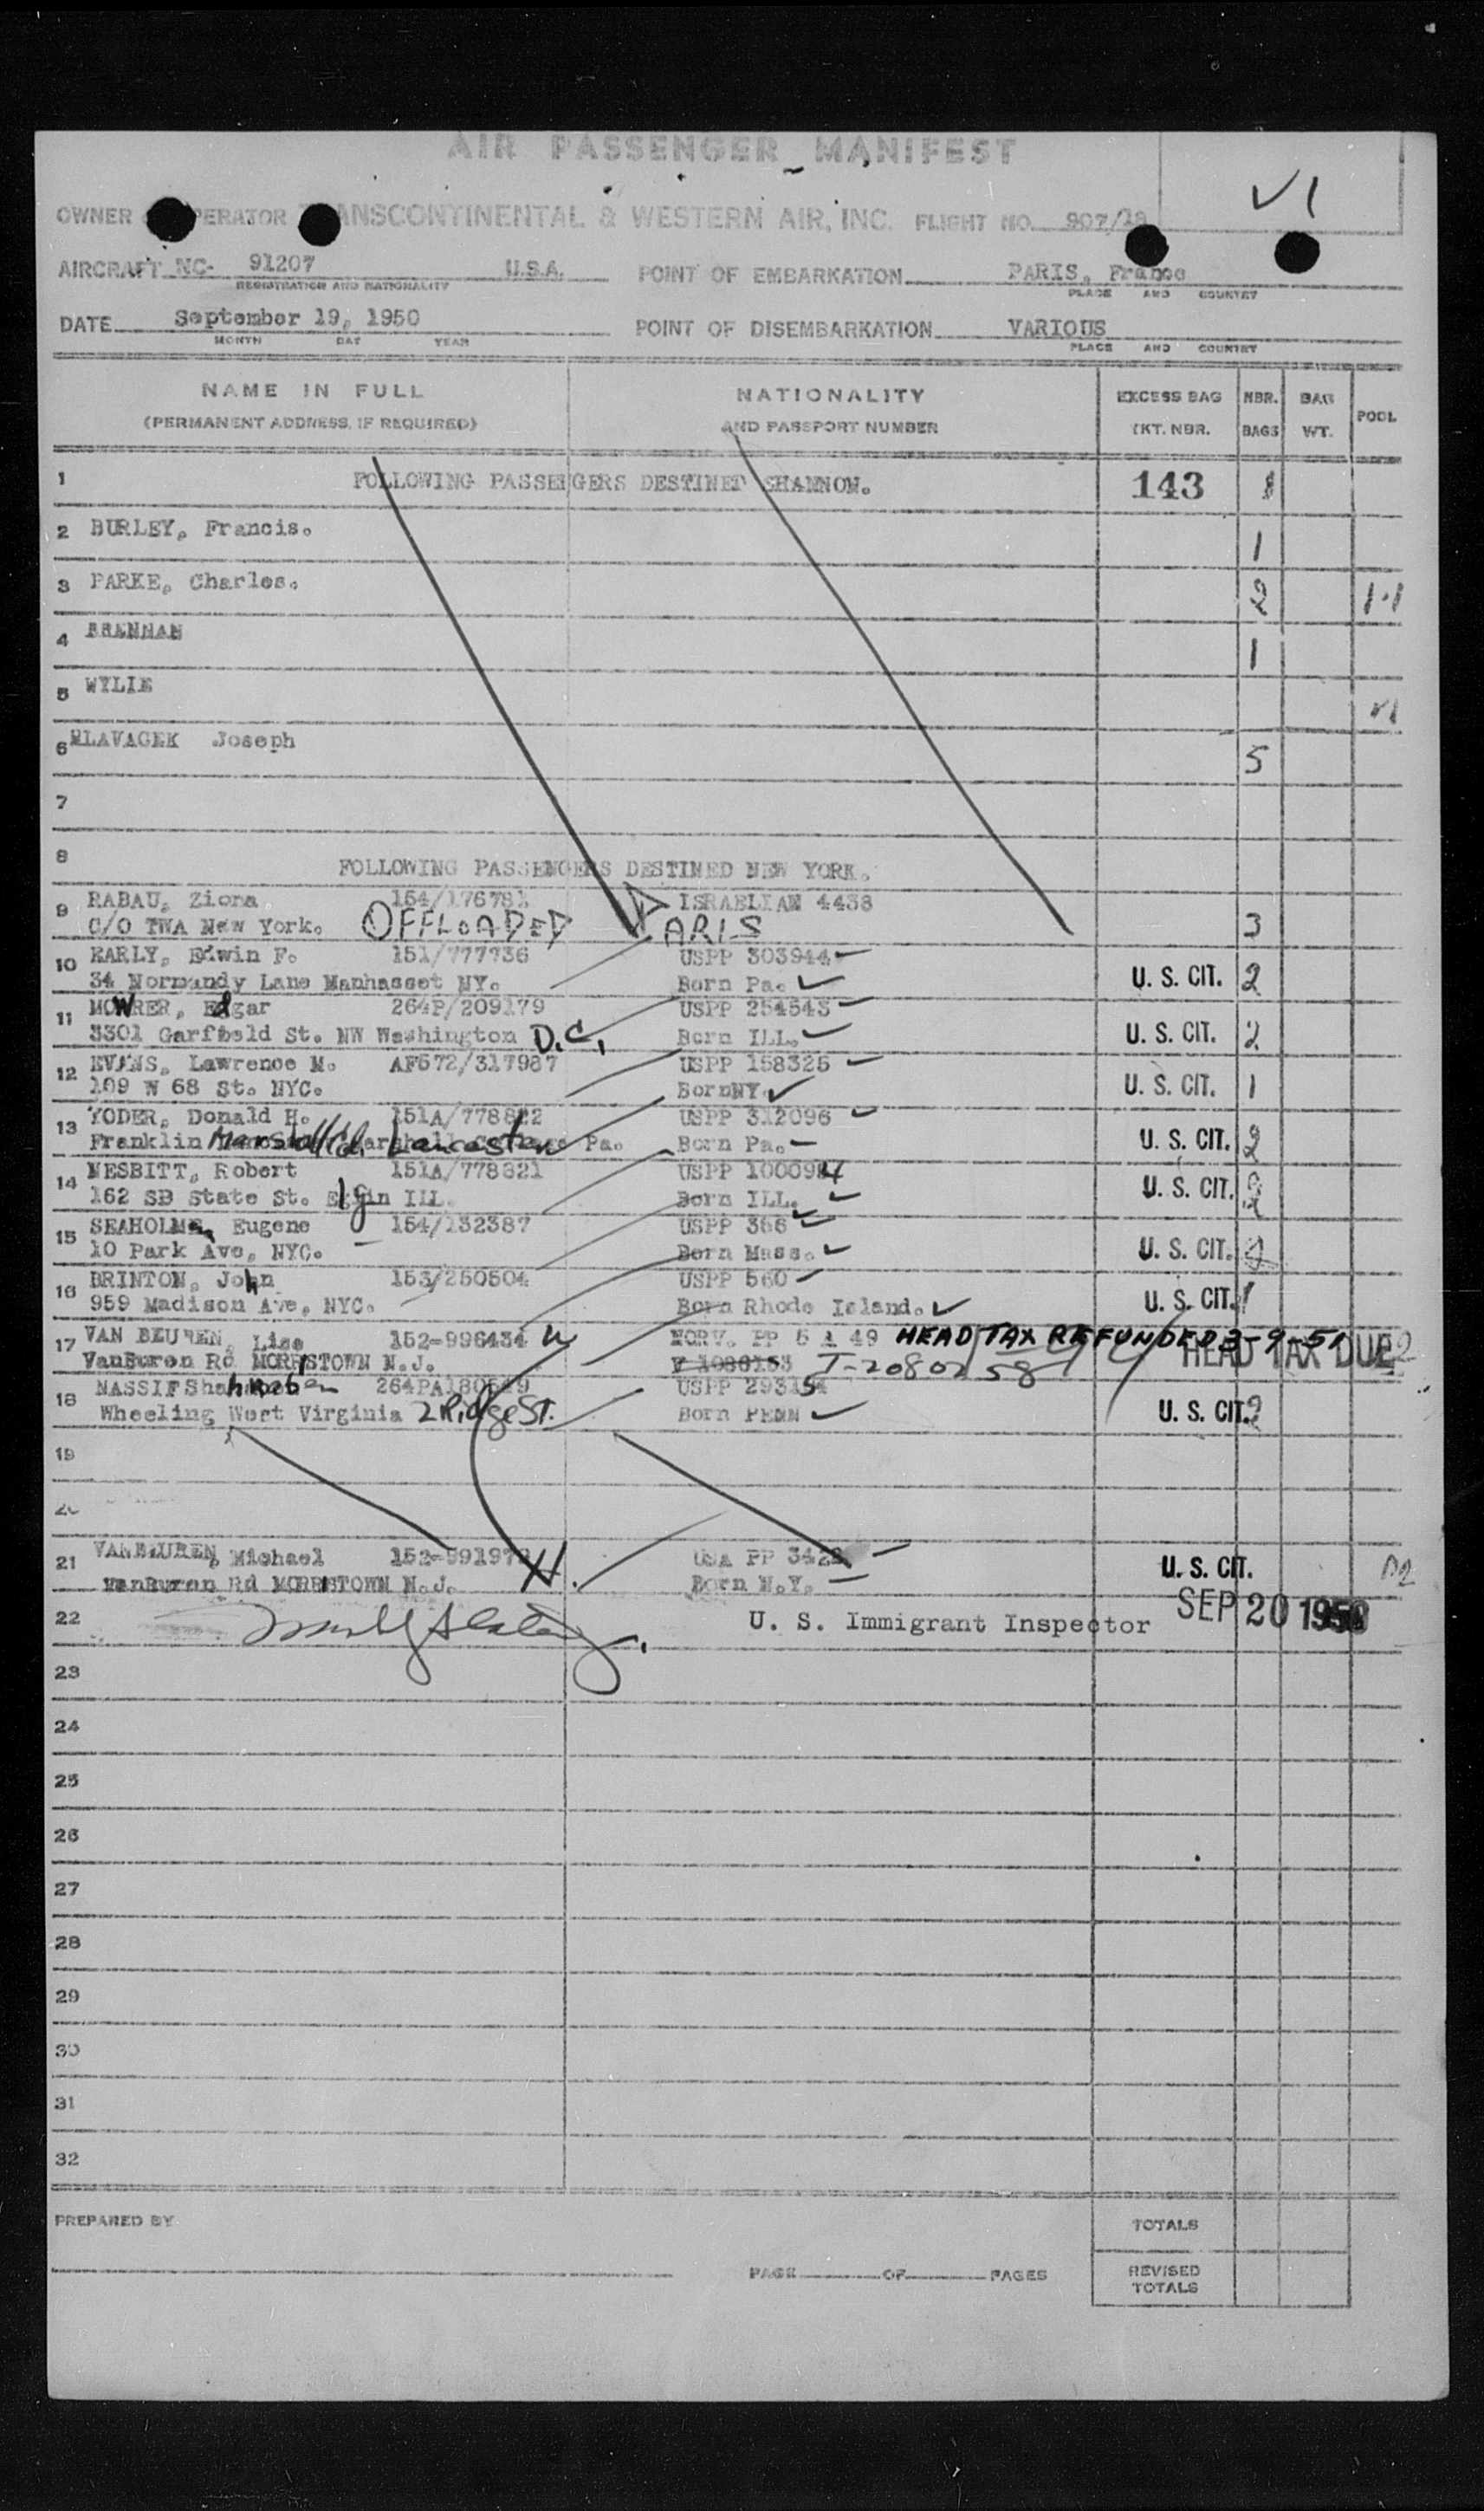 AIR PASSENGER MANIFEST
V1
OWNER OPERATOR TRANSCONTINENTAL & WESTERN AIR, INC. FLIGHT NO. 907/18
AIRCRAFT NC- 91207 U.S.A. POINT OF EMBARKATION PARIS, France
REGISTRATION AND NATIONALITY PLACE AND COUNTRY
DATE September 19, 1950 POINT OF DISEMBARKATION VARIOUS
MONTH DAY YEAR PLACE AND COUNTRY
NAME IN FULL NATIONALITY EXCESS BAG NBR. BAG POOL
(PERMANENT ADDRESS, IF REQUIRED) AND PASSPORT NUMBER TKT. NBR. BAGS WT.
1 FOLLOWING PASSENGERS DESTINED SHANNON. 143
2 BURLEY, Francis. 1
3 PARKE, Charles. 2
4 BRENNAN 1
5 WYLIE
6 HLAVACEK Joseph 5
7
8 FOLLOWING PASSENGERS DESTINED NEW YORK.
9 RABAU, Ziona 154/176781 ISRAELIAN 4438
C/O TWA New York. OFFLOADED PARIS 3
10 EARLY, Edwin F. 151/777736 USPP 303944
34 Normandy Lane Manhasset NY. Born Pa. U. S. CIT. 2
11 MOWRER, Edgar 264P/209179 USPP 254543
3301 Garfield St. NW Washington D.C. Born ILL. U. S. CIT. 2
12 EVANS, Lawrence M. AF572/317987 USPP 158325
109 W 68 St. NYC. BornNY U. S. CIT. 1
13 YODER, Donald H. 151A/778822 USPP 312096
Franklin Marshall Lancaster Pa. Born Pa. U. S. CIT. 2
14 NESBITT, Robert 151A/778821 USPP 100094
162 SB State St. Elgin ILL. Born ILL. U. S. CIT. 2
15 SEAHOLM, Eugene 154/132387 USPP 366
10 Park Ave, NYC. Born Mass. U. S. CIT.
16 BRINTON, John 153/250504 USPP 560
959 Madison Ave, NYC. Born Rhode Island. U. S. CIT. 1
17 VAN BEUREN, Lise 152-996434 NORV. PP 5 1 49 HEAD TAX REFUNDED 3-9-51
VanBuren Rd MORRISTOWN N.J. V 1086153 I-2080258 HEAD TAX DUE 2
18 NASSIF 264PA180549 USPP 29315
Wheeling West Virginia 2 Ridge ST. Born PENN U. S. CIT. 2
19
20
21 VANBEUREN, Michael 152-991979 USA PP 3422
VanBuren Rd MORRISTOWN N.J. Born N.Y. U. S. CIT.
22 U. S. Immigrant Inspector SEP 20 1950
23
24
25
26
27
28
29
30
31
32
PREPARED BY TOTALS
PAGE OF PAGES REVISED TOTALS